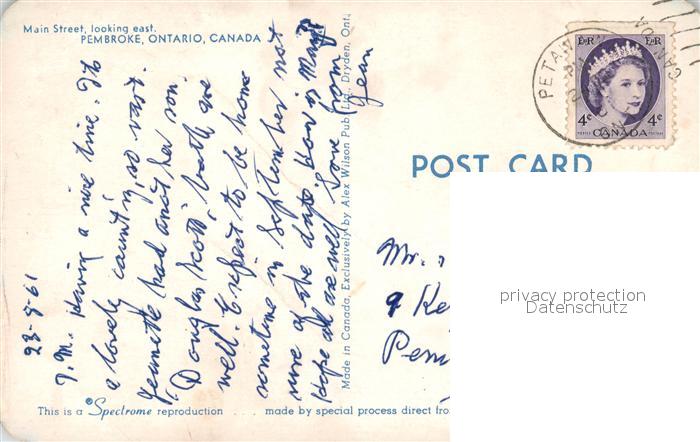 Main Street, looking east,
PEMBROKE, ONTARIO, CANADA
23-7-61
J.M. Having a nice time. It's
a lovely country, so vast.
Jeanette had anoth her son.
"Douglas Scott", both are
well. Expect to be home
sometime in September not
sure of the date. How is Mary?
Hope all are well Love from
Jean
Made in Canada, Exclusively by Alex Wilson Pub Ltd., Dryden, Ont.
PETAW
CANADA
4¢ 4¢
EIIR EIIR
POST CARD
Mr.
9 Ke
Pem
privacy protection
Datenschutz
This is a Spectrome reproduction . . . made by special process direct fro